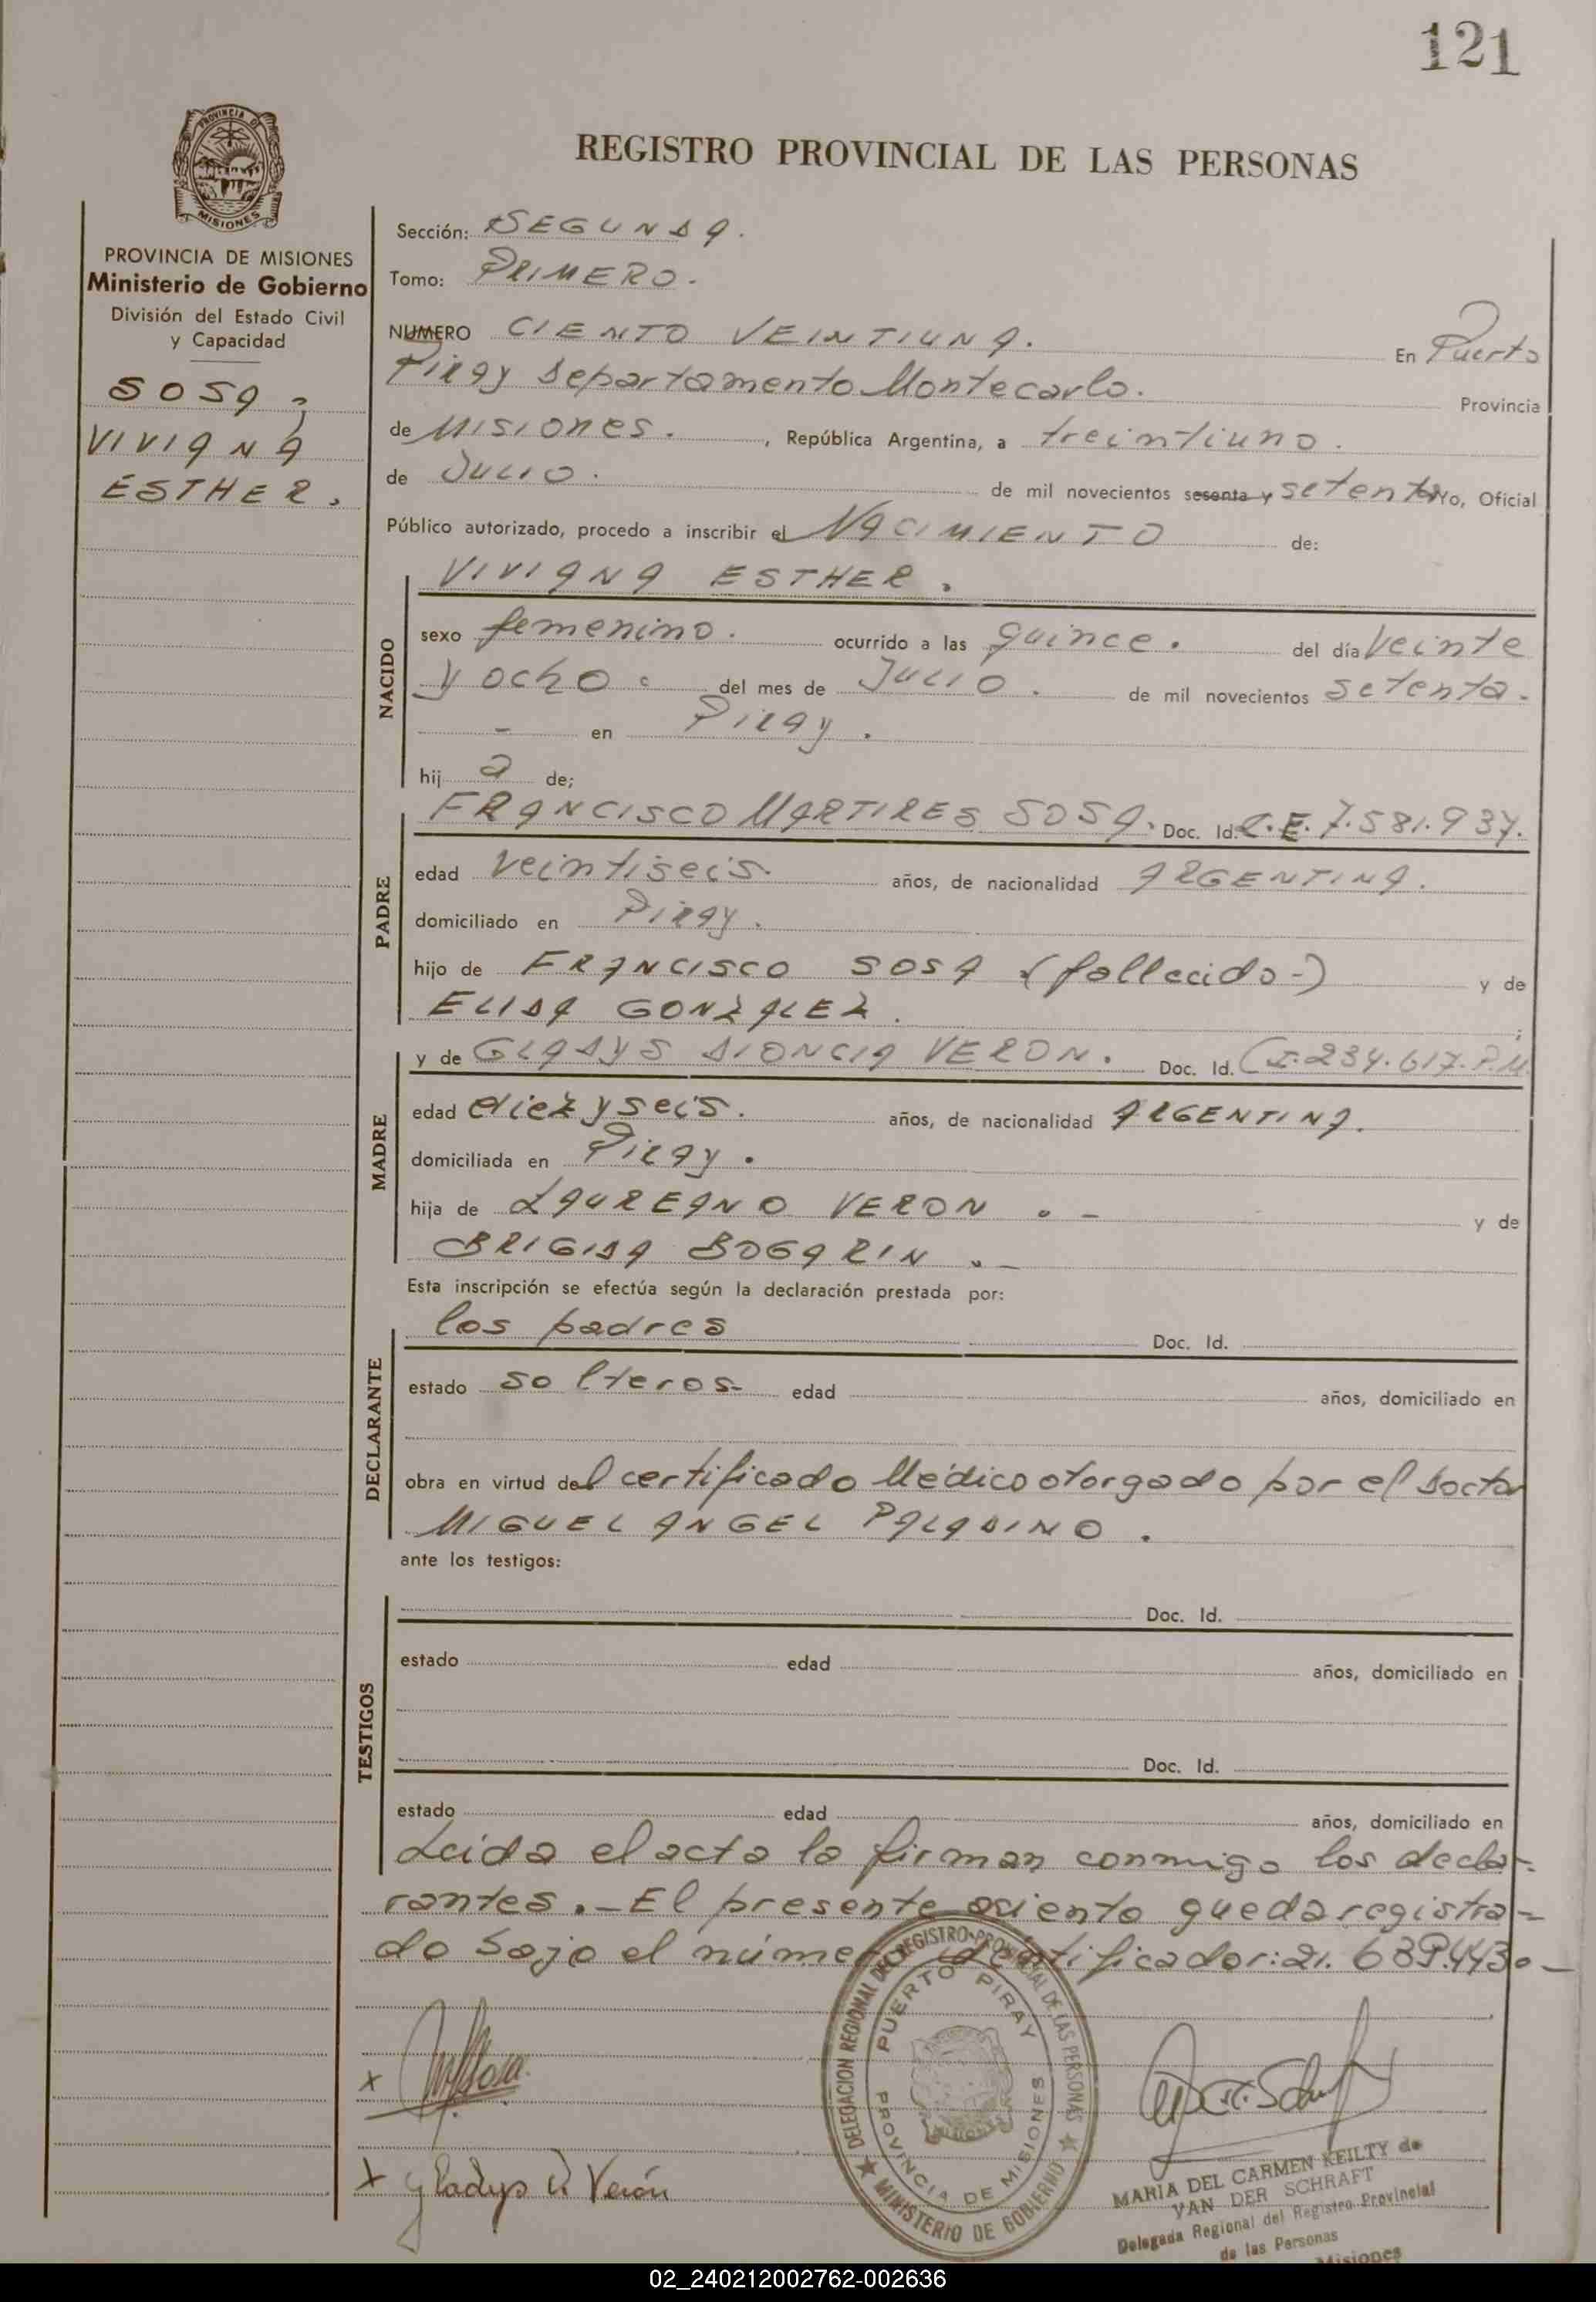 121
PROVINCIA DE
MISIONES
REGISTRO PROVINCIAL DE LAS PERSONAS
PROVINCIA DE MISIONES
Ministerio de Gobierno
División del Estado Civil
y Capacidad
SOSA,
VIVIANA
ESTHER.
Sección: SEGUNDA.
Tomo: PRIMERO.
NUMERO CIENTO VEINTIUNA. En Puerto
Piray Departamento Montecarlo. Provincia
de Misiones. , República Argentina, a treintiuno.
de Julio. de mil novecientos sesenta y setenta Yo, Oficial
Público autorizado, procedo a inscribir el NACIMIENTO de:
NACIDO
VIVIANA ESTHER.
sexo femenino. ocurrido a las quince. del día Veinte
y ocho. del mes de Julio. de mil novecientos setenta.
- en Piray.
hij a de;
PADRE
FRANCISCO MARTIRES SOSA. Doc. Id. L.E. 7.581.937.
edad veintiseis. años, de nacionalidad ARGENTINA.
domiciliado en Piray.
hijo de FRANCISCO SOSA (fallecido-) y de
ELIDA GONZALEZ. ;
MADRE
y de GLADYS DIONCIA VERON. Doc. Id. C.I. 234.617. P.M.
edad diez y seis. años, de nacionalidad ARGENTINA.
domiciliada en Piray.
hija de LAUREANO VERON .- y de
BRIGIDA BOGARIN .-
Esta inscripción se efectúa según la declaración prestada por:
DECLARANTE
los padres Doc. Id.
estado solteros- edad años, domiciliado en
obra en virtud del certificado Médico otorgado por el Doctor
MIGUEL ANGEL PALADINO.
ante los testigos:
TESTIGOS
Doc. Id.
estado edad años, domiciliado en
Doc. Id.
estado edad años, domiciliado en
Leida el acta la firman conmigo los decla-
rantes.- El presente asiento queda registra-
do bajo el número identificador: 21. 639.443.-
DELEGACION REGIONAL DEL REGISTRO PROVINCIAL DE LAS PERSONAS
PUERTO PIRAY
PROVINCIA DE MISIONES
MINISTERIO DE GOBIERNO
x
x Gladys D. Verón
MARIA DEL CARMEN KEILTY de
VAN DER SCHRAFT
Delegada Regional del Registro Provincial
de las Personas
Misiones
02_240212002762-002636